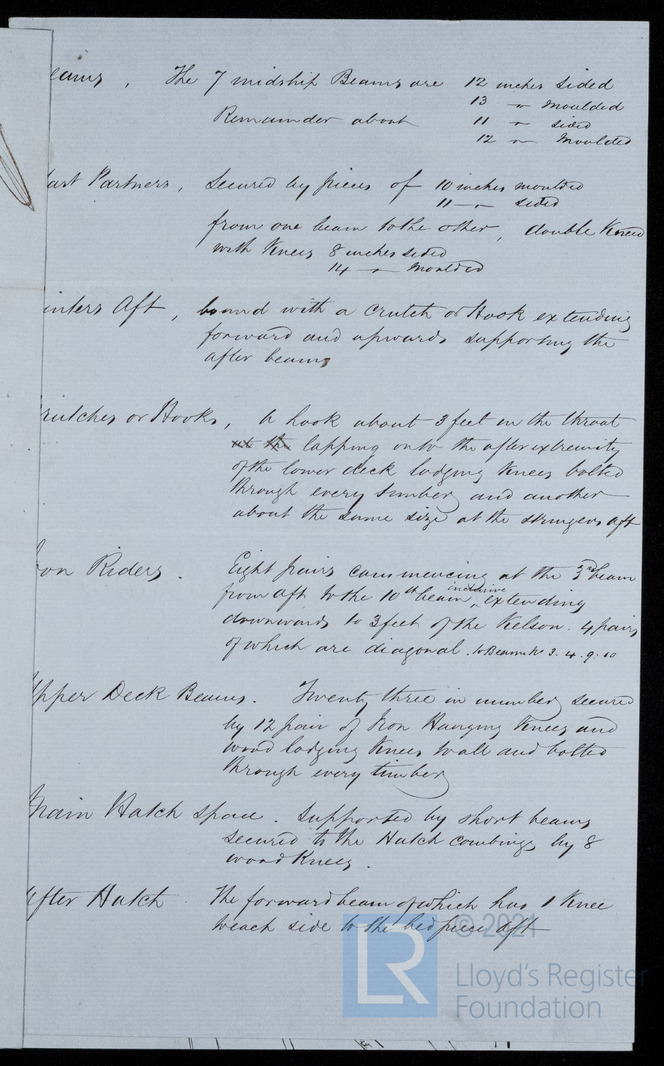 eams, The 7 midship Beams are 12 inches sided
13 " moulded
Remainder about 11 " sided
12 " Moulded
ast Partners, secured by pieces of 10 inches moulded
11 " sided
from one beam to the other, double Kneed
with Knees 8 inches sided
14 " Moulded
inters Aft, bound with a Crutch or Hook extending
forward and upwards supporting the
after beams
rutches or Hooks, A hook about 3 feet in the throat
lapping onto the after extremity
of the lower deck lodging Knees bolted
through every timber and another
about the same size at the stringers aft
ron Riders. Eight pairs commencing at the 3rd beam
from aft to the 10th beam inclusive extending
downwards to 3 feet of the Kelson. 4 pairs
of which are diagonal. to Beams No 3. 4. 9. 10
Upper Deck Beams. Twenty three in number secured
by 12 pair of Iron Hanging Knees and
wood lodging Knees to all and bolted
through every timber
Main Hatch space. Supported by short beams
secured to the Hatch combings by 8
wood Knees.
After Hatch The forward beam of which has 1 Knee
to each side to the bed piece aft
© 2021
LR
Lloyd's Register
Foundation